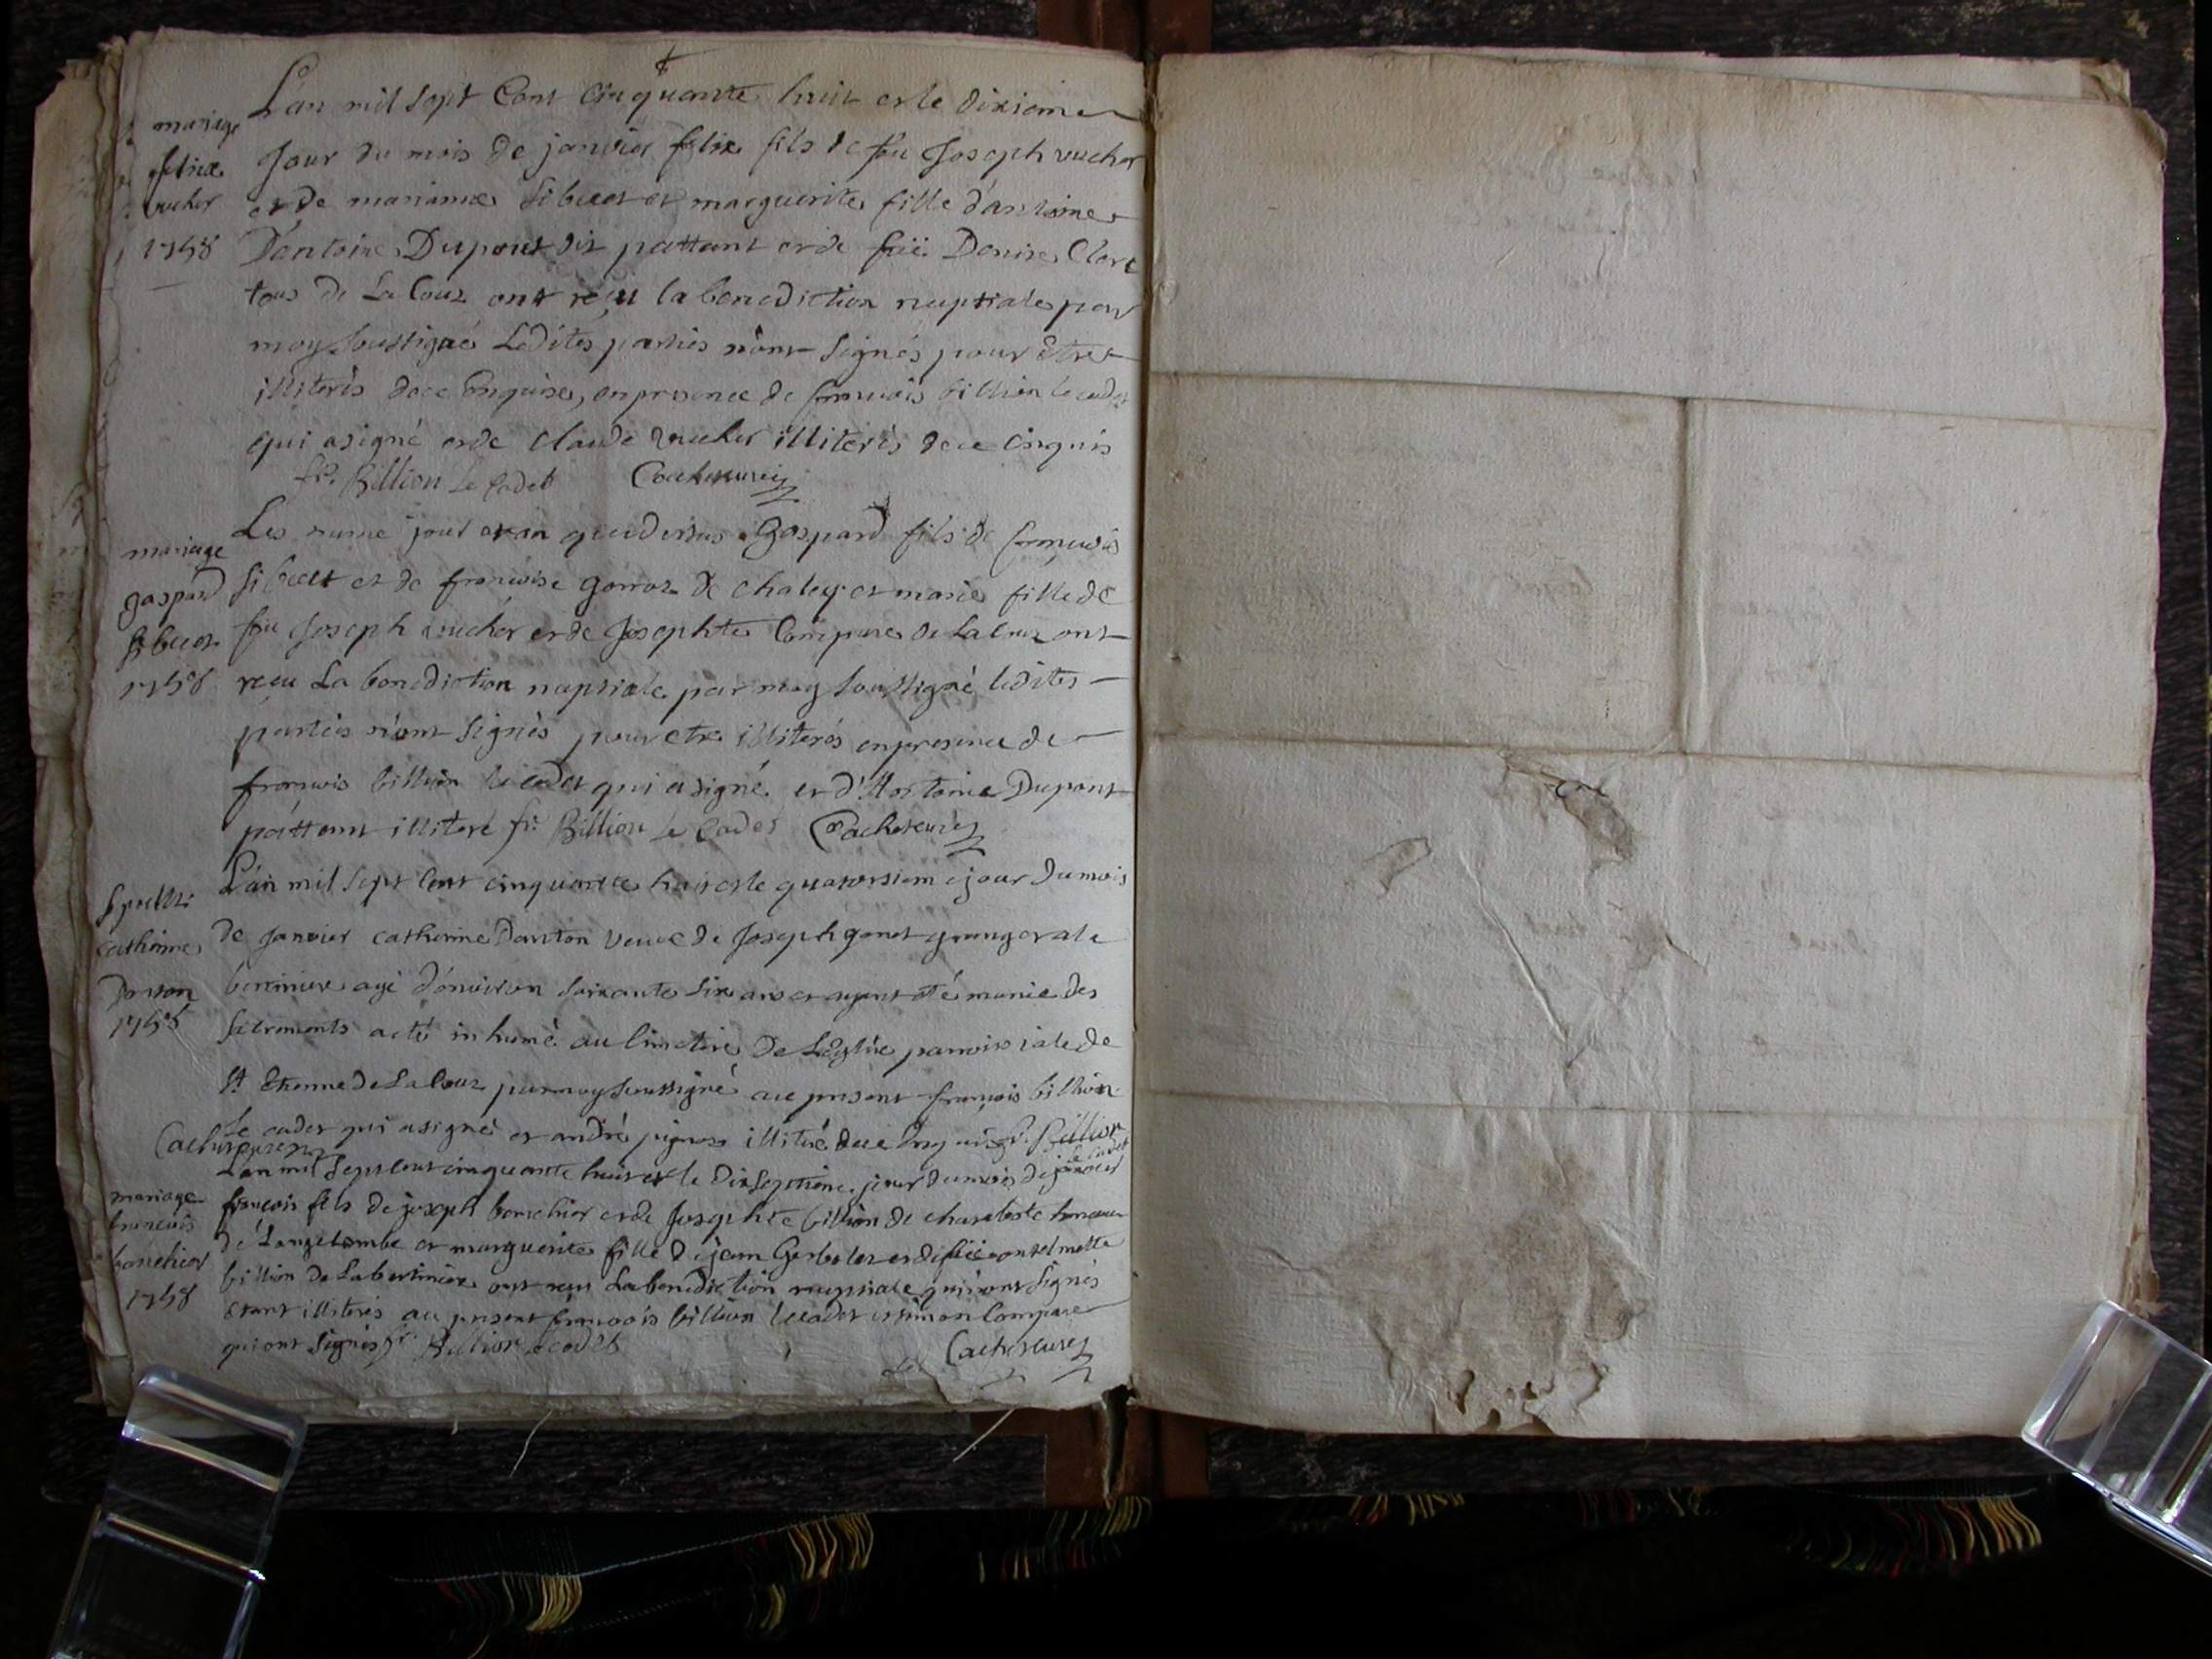 L'an mil sept Cent Cinquante huit et le dixieme
mariage
felix
vucher
1758
Jour du mois de janvier felix fils de feu Joseph vucher
et de marianne Sibuet et marguerite fille d'antoine
D'antoine Dupont dit pattant et de fuë Denise Clert
tous de La Couz ont reçu la benediction nuptiale par
moy soussigné Lesdites parties n'ont signés pour Etre
illiterés de ce Enquise, en presence de francois billion le cadet
qui a signé et de claude vucher illiterés de ce Enquis
fr. Billion Le Cadet Cachet curé
mariage
gaspard
Sibuet
1758
Les meme jour et an que dessus Gaspard fils de francois
Sibuet et de francoise gorroz de chaley et marie fille de
feu Joseph vucher et de Josephte Compare de La Couz ont
reçu La benediction nuptiale par moy soussigné lesdites
parties n'ont signés pour etre illiterés en presence de
francois billion le cadet qui a signé et d'Antoine Dupont
pattant illiteré fr. Billion Le Cadet Cachet curé
Spulture
catherine
Danton
1758
L'an mil sept Cent cinquante huit et le quatorsieme jour du mois
de Janvier catherine Danton veuve de Joseph gonet granger a la
bertiniere agé d'environ soixante six ans et ayant été munie des
sacrements a eté inhumé au Cimetiere De L'Eglise parroissiale de
St Etienne de La Couz par moy soussigné au present francois billion
Le cadet qui a signé et andré pignoz illitéré de ce Enquis fr. Billion
le Cadet
Cachet curé
mariage
francois
bonchier
1758
L'an mil Sept Cent cinquante huit et le Dixseptieme jour du mois de janvier
francois fils de joseph bonchier et de Josephte billion de
de Lange Combe et marguerite fille de jean Gerbelot et de fuë
billion De La bertiniere ont reçu La benediction nuptiale qui n'ont signés
Etant illiterés au present francois billion le cadet et simon Compare
qui ont signés fr. Billion Le cadet
Cachet curé